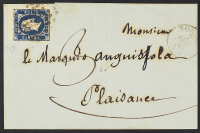 Monsieur
le Marquis Anguissola
Plaisance